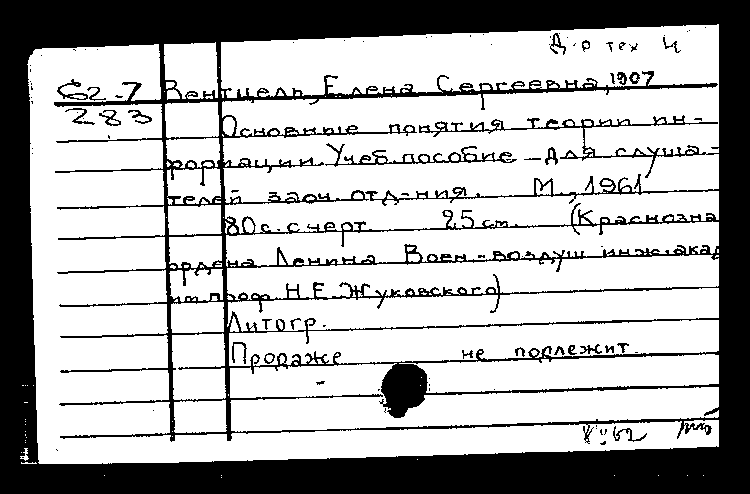 Д-р тех
С2-7 Вентцель, Елена Сергеевна, 1907
283 Основные понятия теории ин-
формации. Учеб. пособие для слуша-
телей заоч. отд-ния. М., 1961
80 с. с черт. 25 см. (Краснозна
ордена Ленина Воен-воздуш инж. акад
им. проф. Н.Е. Жуковского)
Литогр.
Продаже не подлежит
62